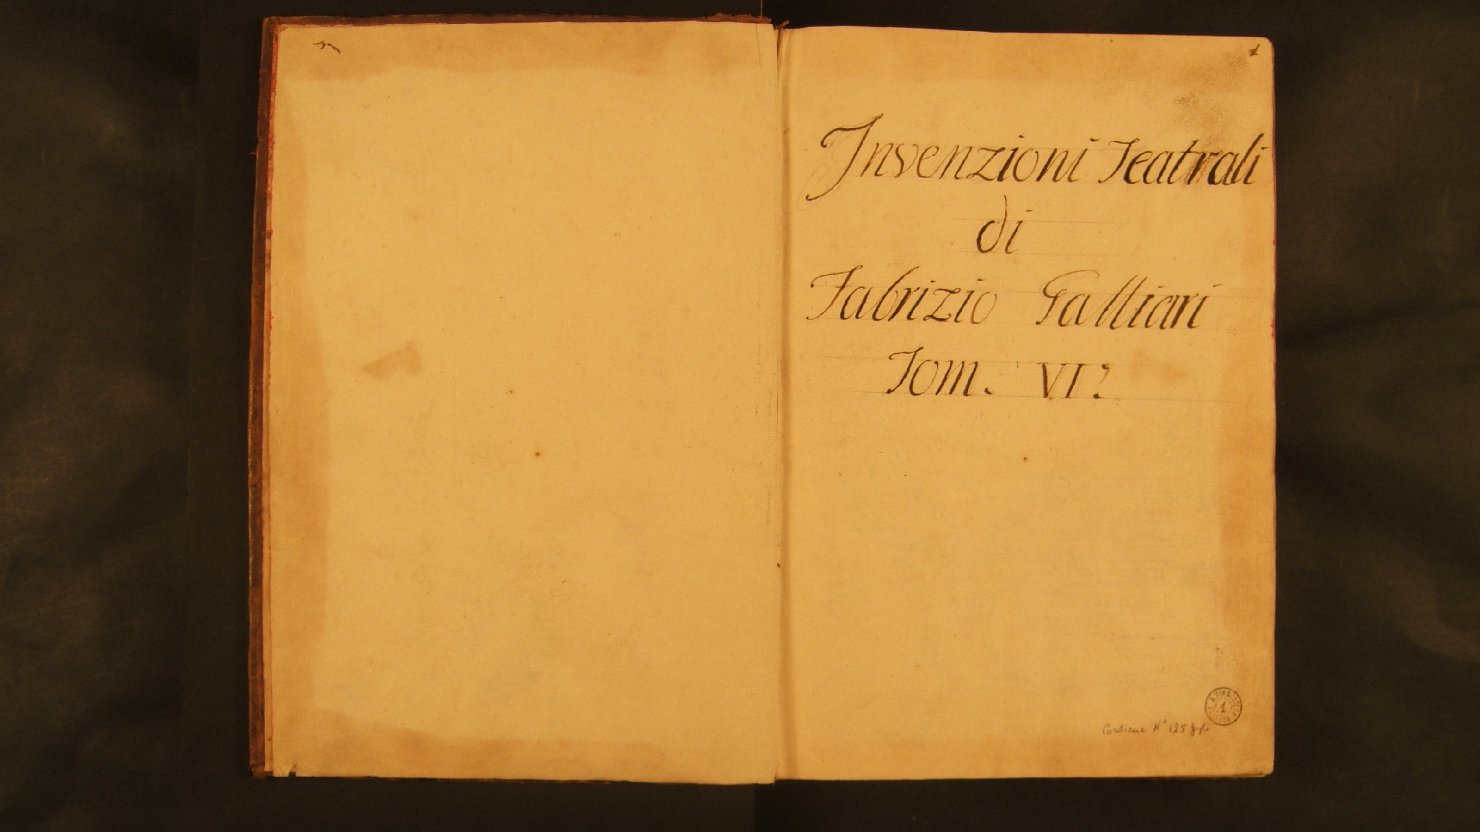 Invenzioni Teatrali
di
Fabrizio Galliari
Tom. VI.
1
Contiene N° 125